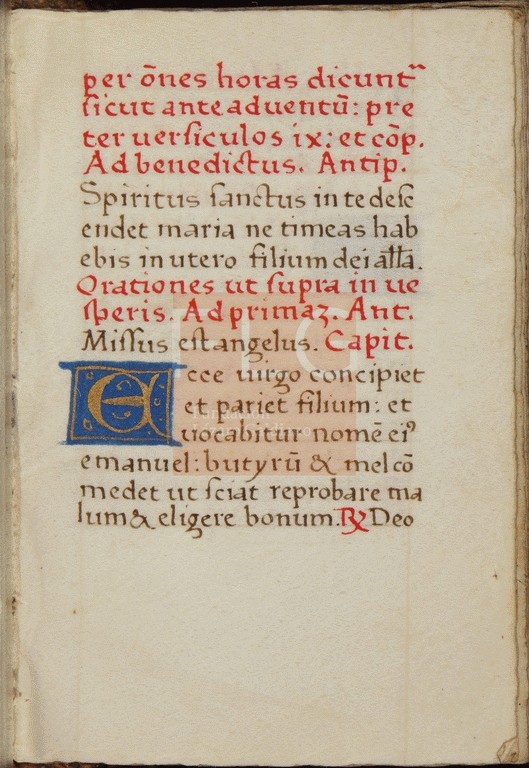 per ōnes horas dicunt᷑
ſicut ante aduentū: pre
ter uerſiculos ix: et cōp.
Ad benedictus. Antip.
Spiritus ſanctus in te deſc
endet maria ne timeas hab
ebis in utero filium dei alla̅.
Orationes ut ſupra in ue
ſperis. Ad primaꝫ. Ant.
Miſſus eſt angelus. Capit.
Ecce uirgo concipiet
et pariet filium: et
uocabitur nomē eiꝰ
emanuel: butyrū & mel cō
medet ut ſciat reprobare ma
lum & eligere bonum. ℞ Deo